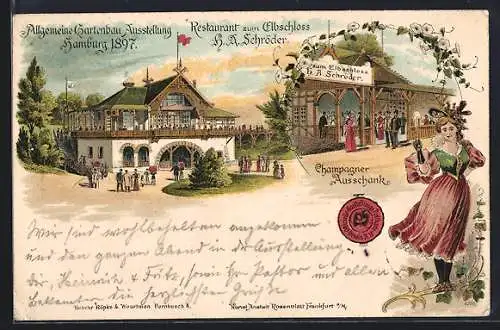 Allgemeine Gartenbau Ausstellung
Hamburg 1897.
Restaurant zum Elbschloss
H. A. Schröder.
zum Elbschloss
H. A. Schröder.
Champagner
Ausschank.
Wir sind wohlbehalten angekommen
und den ganzen Abend in der Ausstellung
der, Heinrich & Fritz, Herr Pastor und allen
Bekannten die herzlichsten Grüße
Kunst Anstalt Rosenblatt Frankfurt a/M.